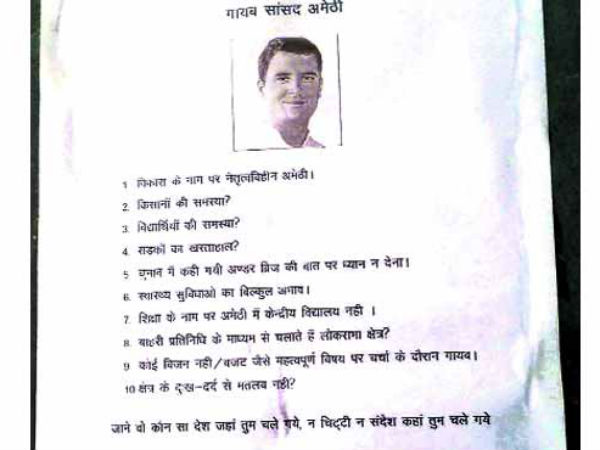 गायब सांसद अमेठी
1 विकास के नाम पर नेतृत्वविहीन अमेठी।
2. किसानों की समस्या?
3. विद्यार्थियों की समस्या?
4. सड़कों का खस्ताहाल?
5 चुनाव में कही गयी अण्डर ब्रिज की बात पर ध्यान न देना।
6. स्वास्थ्य सुविधाओं का बिल्कुल अभाव।
7. शिक्षा के नाम पर अमेठी में केन्द्रीय विद्यालय नही ।
8 बाहरी प्रतिनिधि के माध्यम से चलाते हैं लोकसभा क्षेत्र?
9 कोई विजन नही/बजट जैसे महत्वपूर्ण विषय पर चर्चा के दौरान गायब।
10 क्षेत्र के दुःख-दर्द से मतलब नही?
जाने वो कौन सा देश जहां तुम चले गये, न चिट्टी न संदेश कहां तुम चले गये